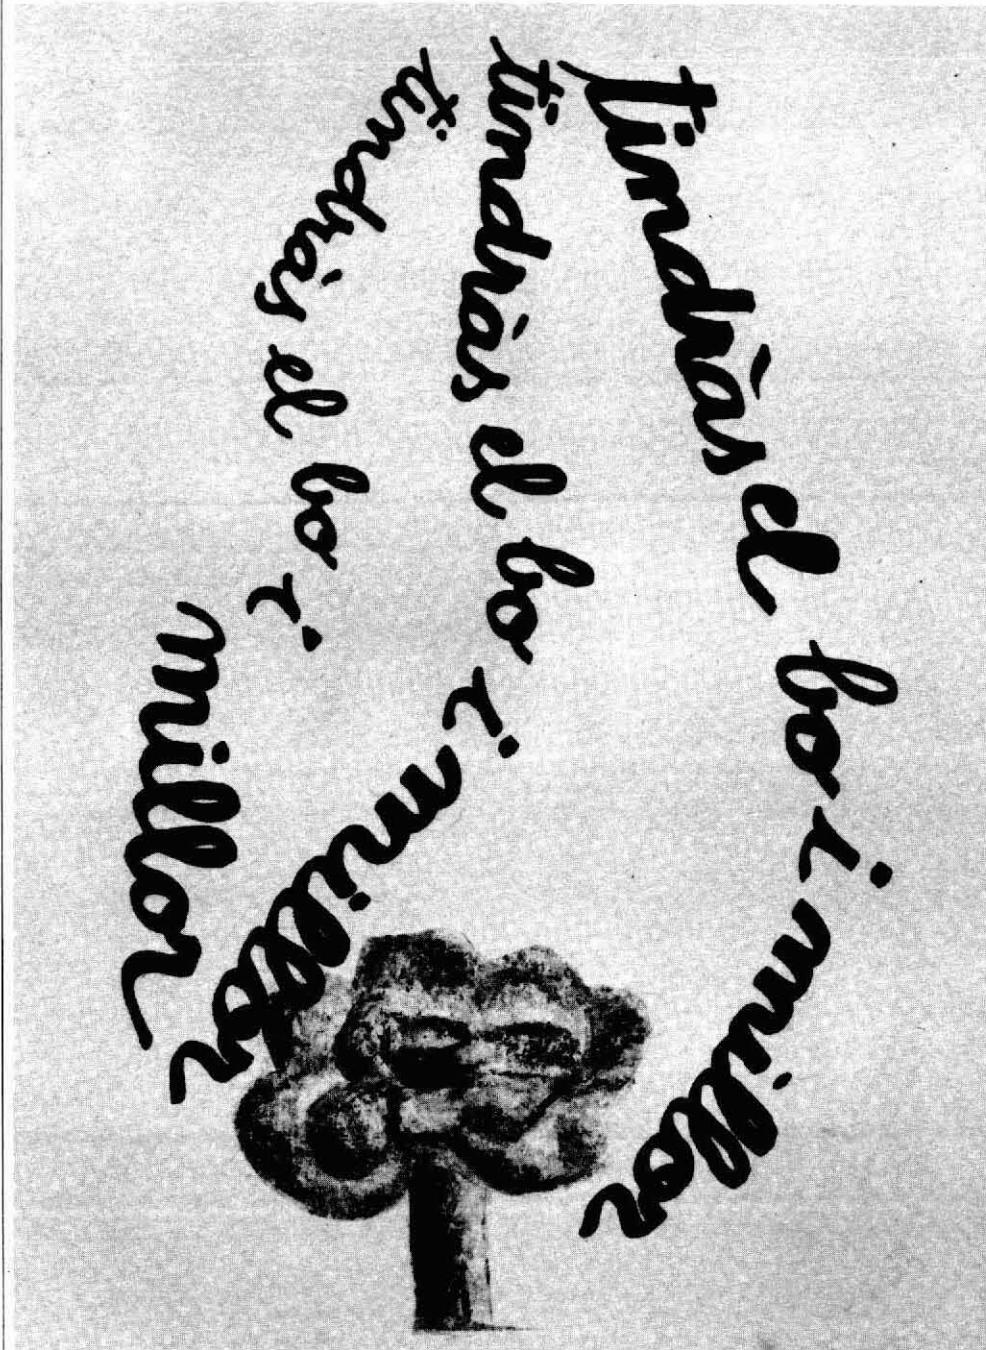 tindràs el bo i millor
tindràs el bo i millor
tindràs el bo i millor